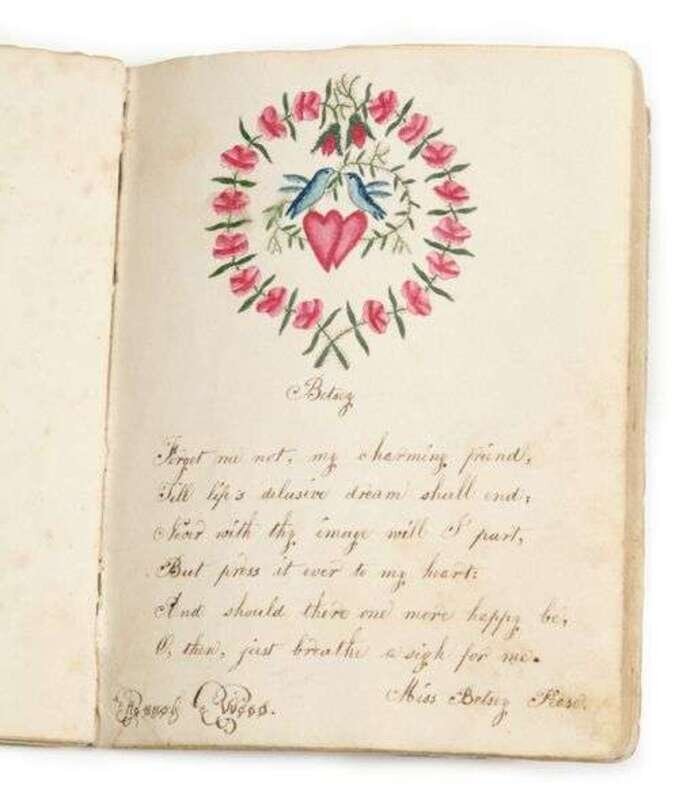 Betsey
Forget me not, my charming friend,
Till life's delusive dream shall end;
Never with thy image will I part,
But press it ever to my heart:
And should there one more happy be,
O, then, just breathe a sigh for me.
Miss Betsey